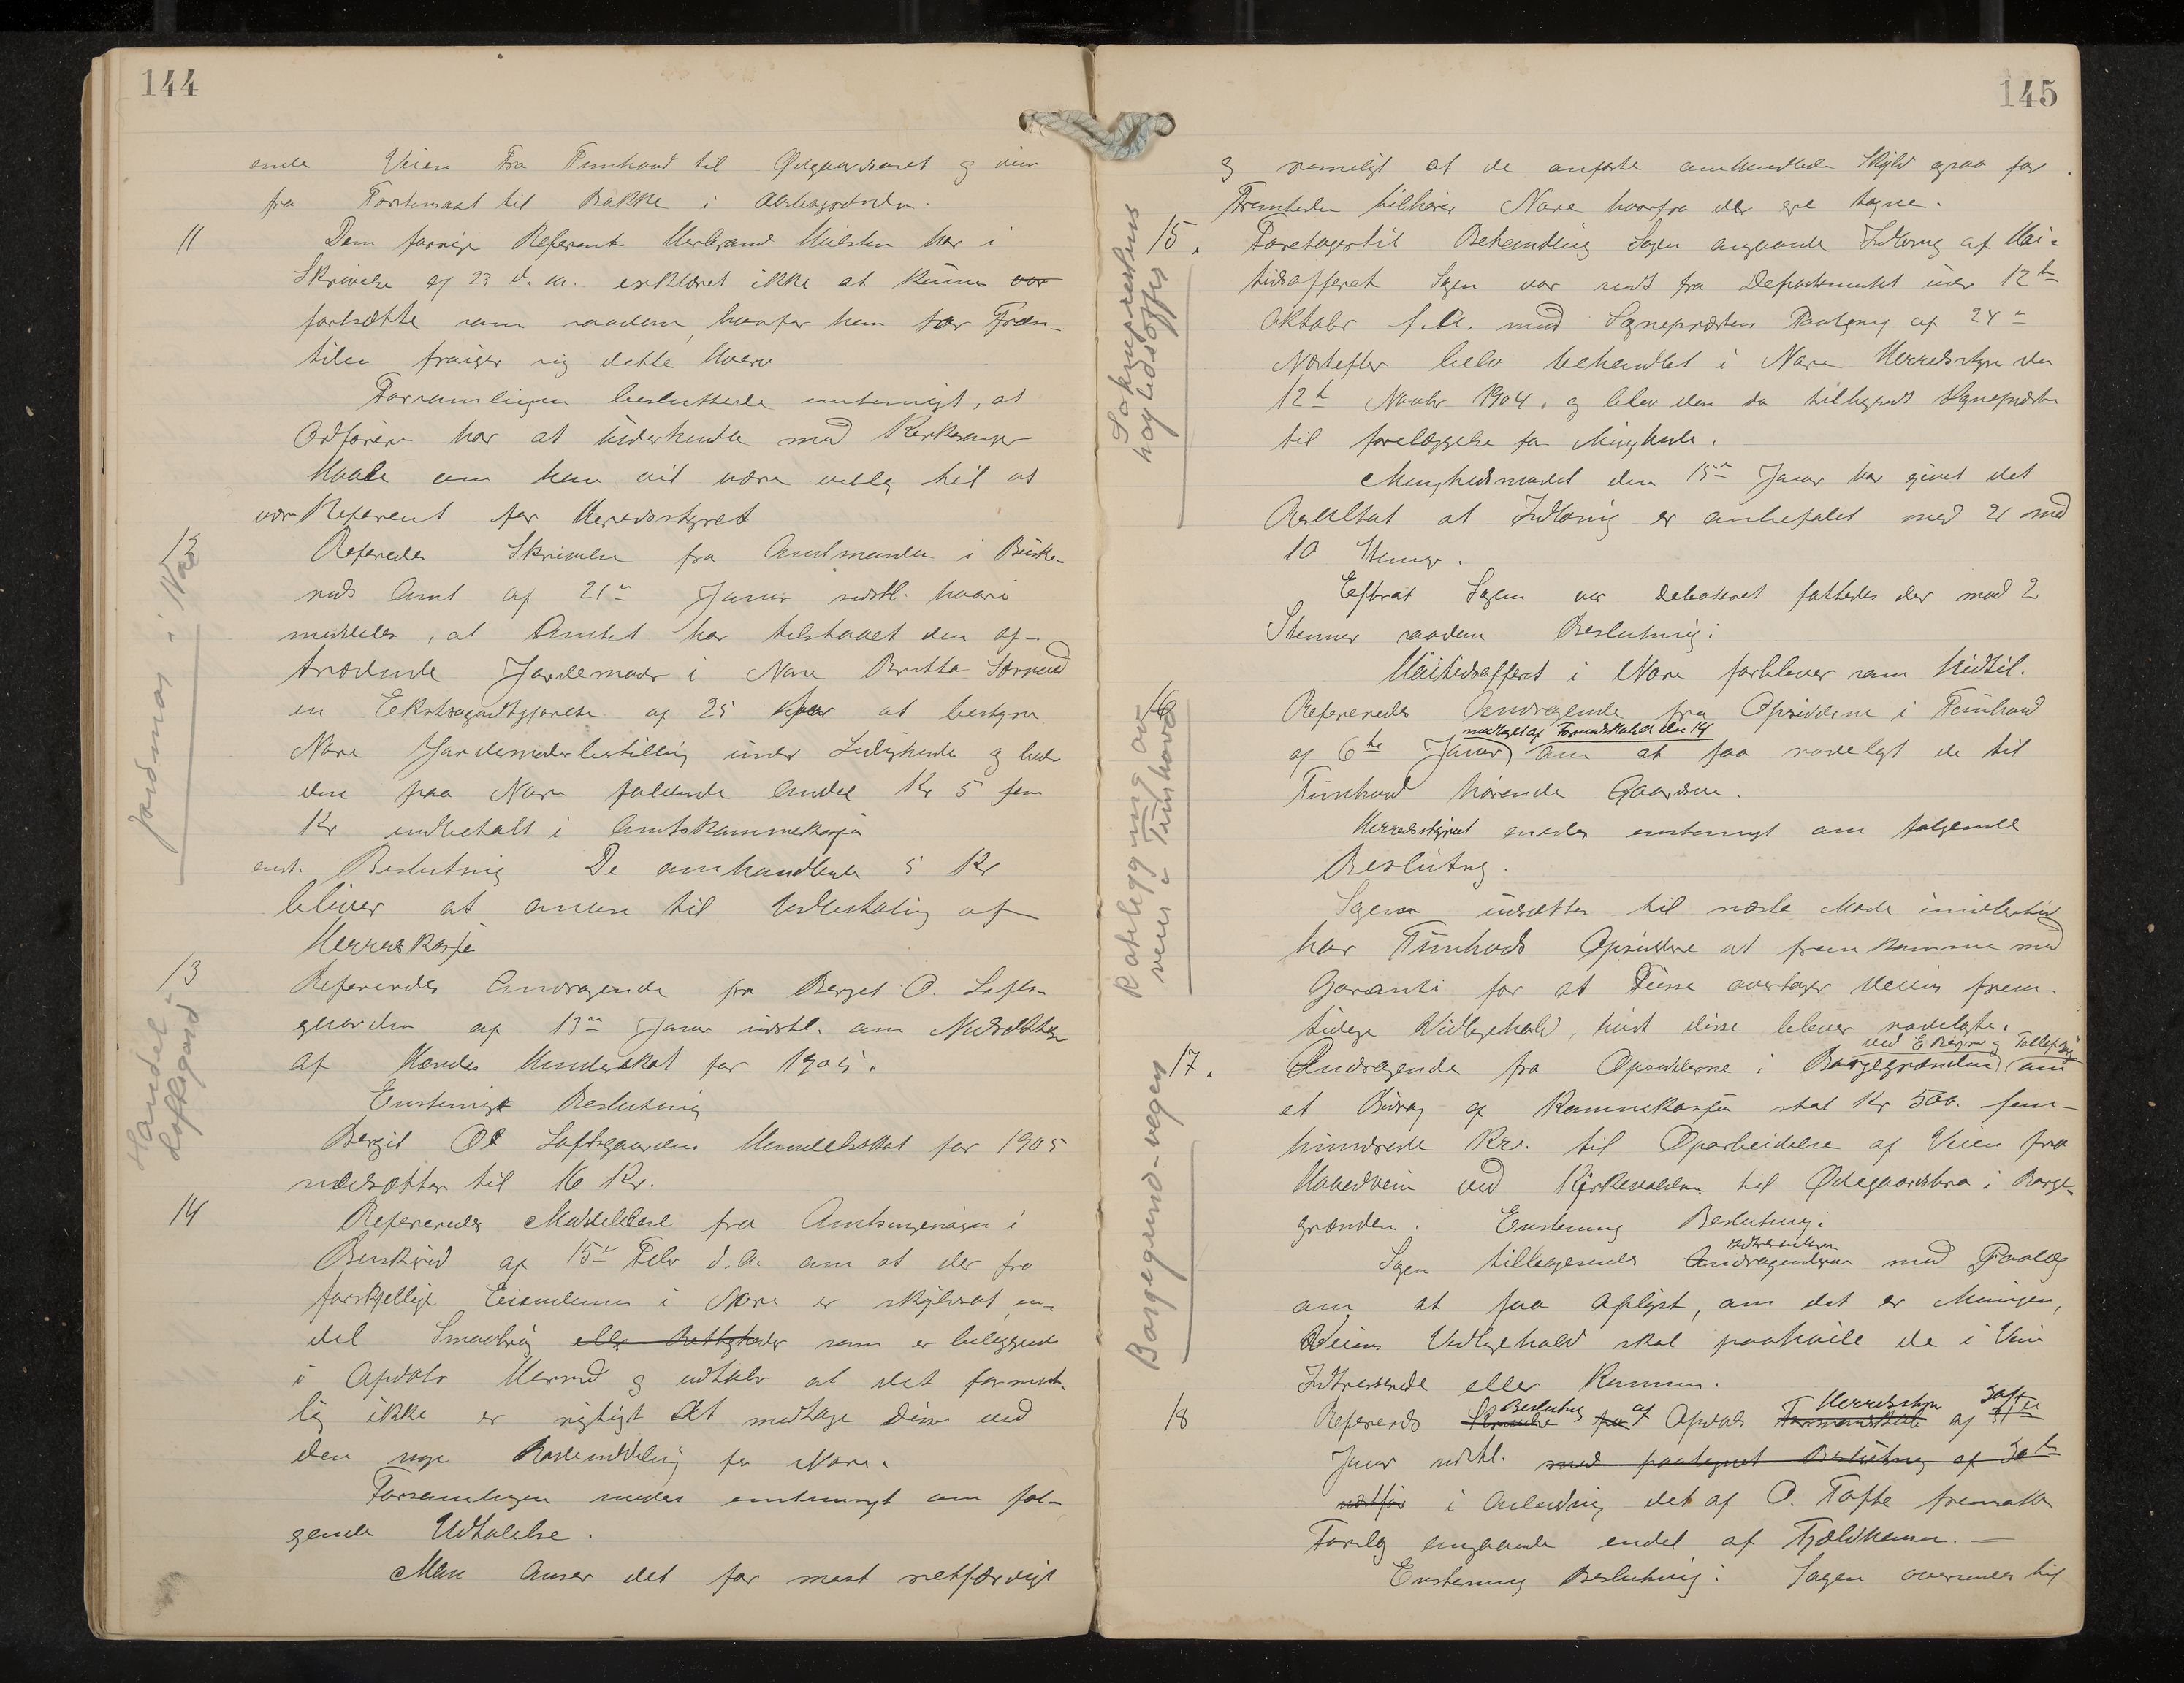 144
ende Veien fra Tunhovd til Ødegaardsæt og vien
fra Torstensaat til Bakke i
11 Dem forrige Referent Herbrand Halsten har i
Skrivelse af 23 d. m. erklæret ikke at kunne
fortsætte som saadem, hvorfor han for Frem-
tiden fraiger sig dette Hverv
Forsamlingen besluttede enstemigt, at
Ordføren har at underhandle med Kirkesanger
om han vil være villig til at
være Referent for Heredsstyret
Jordmor i Nore
12 Refererdes Skrivelse fra Amtmanden i Buske-
ruds Amt af 21de Januar sidstl. hvori
meddeles, at Amtet har tilstaaet den af-
trædende Jordemoder i Nore Britta
en Ekstragodtgjørelse af 25 for at bestyre
Nore Jordemoderbestilling under Ledigheden og
den paa Nore faldende Andel Kr 5 fem
Kr indbetalt i Amtskommunekassen
enst. Beslutning De omhandlede 5 Kr
bliver at anvise til Udbetaling af
Herredskassen
Handel i Loftsgaard
13 Refereredes Andragende fra Berget O. Lofts-
gaarden af 13de Januar sidstl. om Nedsættelse
af Handelsskat for 1905.
Enstemigt Beslutning
Bergit Ol Loftsgaardens Handelsskat for 1905
nedsættes til 16 Kr.
14 Refereredes Meddelelse fra Amtsingeniøren i
Buskrud af 15de Febr d. A. om at der fra
forskjellige Eiendomme i Nore er skyldsat en-
del Smaabrug eller Rettigheder som er beliggende
i Opdals Herred og udtaler at det forment-
lig ikke er rigtigt at medtage disse ved
den nye Rodeinddeling for Nore.
Forsamlingen enedes enstemigt om føl-
gende Udtalelse.
Man anser det for mest retfærdigt
145
og rimeligt at de anførte omhandlede Skyld ogsaa for
Fremtiden tilhører Nore hvorfra der ere tagne.
Soknuprestens høgtidsoffer
15. Foretages til Behandling Sagen angaaende Indløsning af Høi-
tidsofferet Sagen var sendt fra Departementet 12te
Oktober f. A. med Sogneprestens Paategning af 24de
Næstefter blev behandlet i Nore Herredsstyre den
12te Novbr 1904. og blev den da tilbagesendt Sognepresten
til forelæggelse for Menigheden.
Menighedsmødet den 15de Januar har givet det
Resultat at Indløsning er anbefalet med 21 mod
10 Stemmer.
Efterat Sagen var debateret fattedes der mod 2
Stemmer saadan Beslutning:
Høitidsofferet i Nore forbliver som hidtil.
Rotelegging av veien i Tunhovd
16 Refereredes Andragende fra Opsidderne i Tunhovd
modtaget af Formandskabet den 14
af 6te Januar om at faa rodelagt de til
Tunhovd hørende Gaardsveie.
Herredsstyret enedes enstemigt om følgende
Beslutning.
Sagen udsættes til næste Møde imidlertid
har Tunhovds Opsiddere at fremkomme med
Garanti for at disse overtager Veiens frem-
tidige Vedligehold, hvis disse bliver rodelagte.
Borgegrend-vegen
17. Andragende fra Opsidderne i Borgegrænden om
et Bidrag af Kommunekassen stort Kr 500. fem-
hundrede Kr. til Oparbeidelse af Veien fra
Hovedveien ved Kirkevolden til Ødegaardsbra i Borge-
grænden. Enstemig Beslutning:
Sagen tilbagesendes Andragenderne med Paalæg
om at faa oplyst, om det er Meningen,
Veiens Vedligehold skal paahvile de i Veien
Interesserede eller Kommunen.
18 Refereredes Skrivelse Beslutning fra af Opdals Formandskab Herredsstyre af 31te 30te
Januar sidstl. med paategnet Beslutning af 30te
i Anledning det af O. Tofte fremsatte
Forslag angaaende endel af Fjeldheien. —
Enstemig Beslutning: Sagen oversendes til